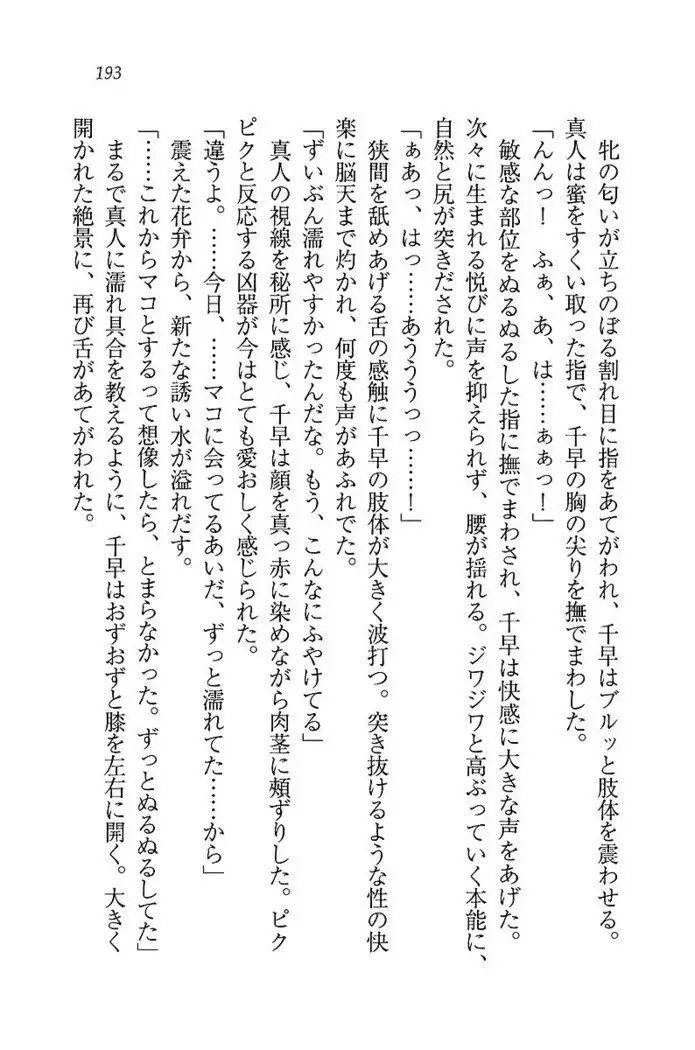 193
牝の匂いが立ちのぼる割れ目に指をあてがわれ、千早はブルッと肢体を震わせる。
真人は蜜をすくい取った指で、千早の胸の尖りを撫でまわした。
「んんっ！　ふぁ、あ、は……ぁぁっ！」
敏感な部位をぬるぬるした指に撫でまわされ、千早は快感に大きな声をあげた。
次々に生まれる悦びに声を抑えられず、腰が揺れる。ジワジワと高ぶっていく本能に、
自然と尻が突きだされた。
「ぁあっ、はっ……あうううっっ……！」
狭間を舐めあげる舌の感触に千早の肢体が大きく波打つ。突き抜けるような性の快
楽に脳天まで灼かれ、何度も声があふれでた。
「ずいぶん濡れやすかったんだな。もう、こんなにふやけてる」
真人の視線を秘所に感じ、千早は顔を真っ赤に染めながら肉茎に頰ずりした。ピク
ピクと反応する凶器が今はとても愛おしく感じられた。
「違うよ。……今日、……マコに会ってるあいだ、ずっと濡れてた……から」
震えた花弁から、新たな誘い水が溢れだす。
「……これからマコとするって想像したら、とまらなかった。ずっとぬるぬるしてた」
まるで真人に濡れ具合を教えるように、千早はおずおずと膝を左右に開く。大きく
開かれた絶景に、再び舌があてがわれた。